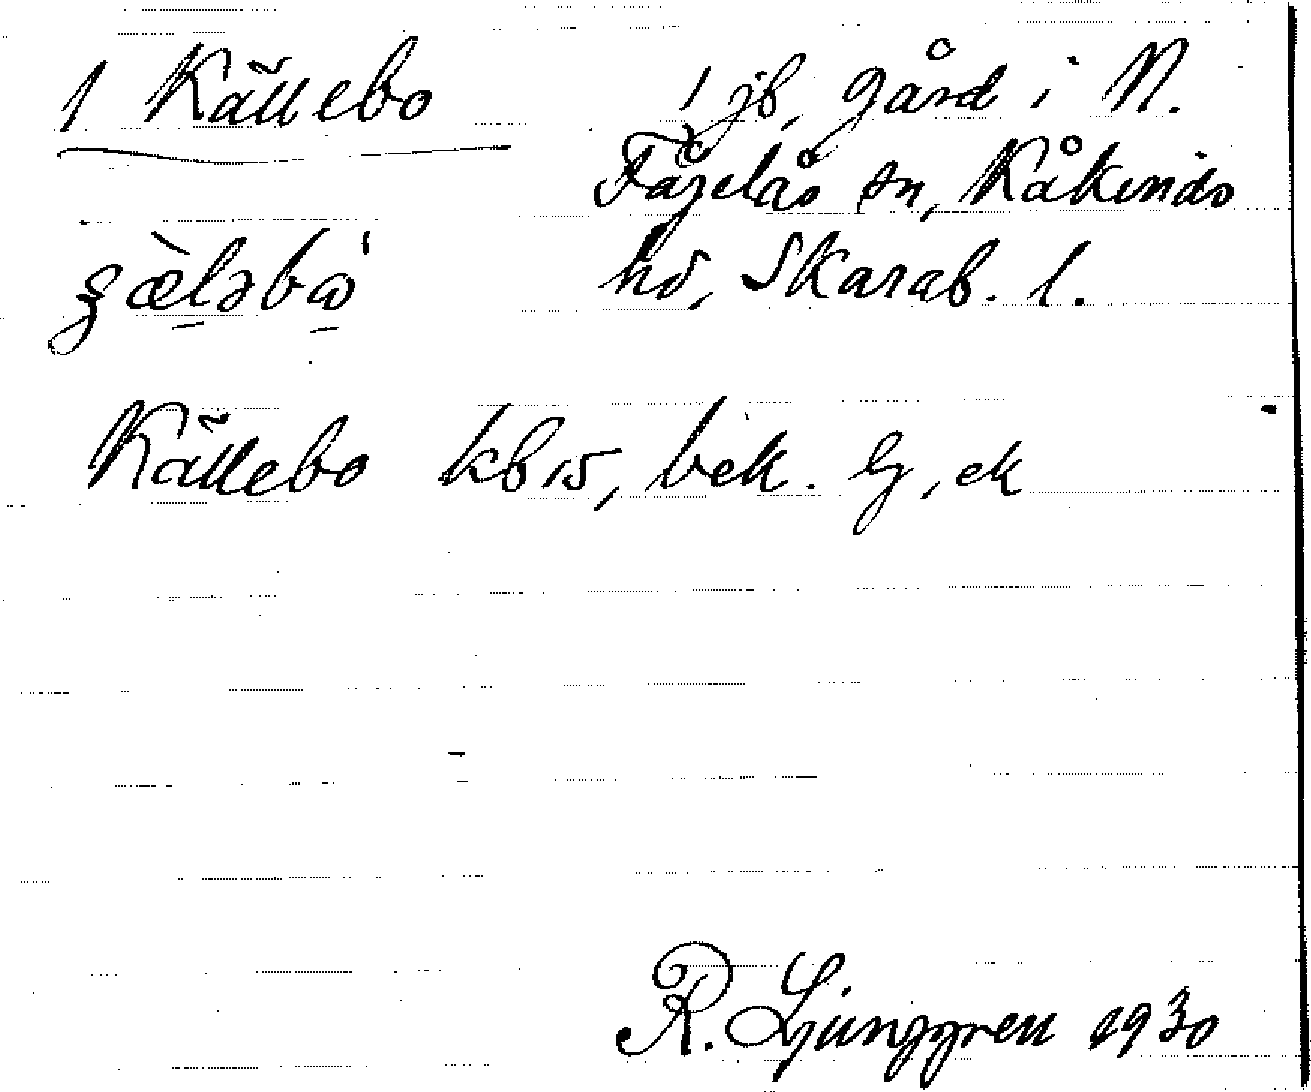 1 Källebo 1 jb, gård i N.
Fågelås sn, Kåkinds
hd, Skarab. l.
Källebo kb 15, bek. Lg, ek
R. Ljunggren 1930